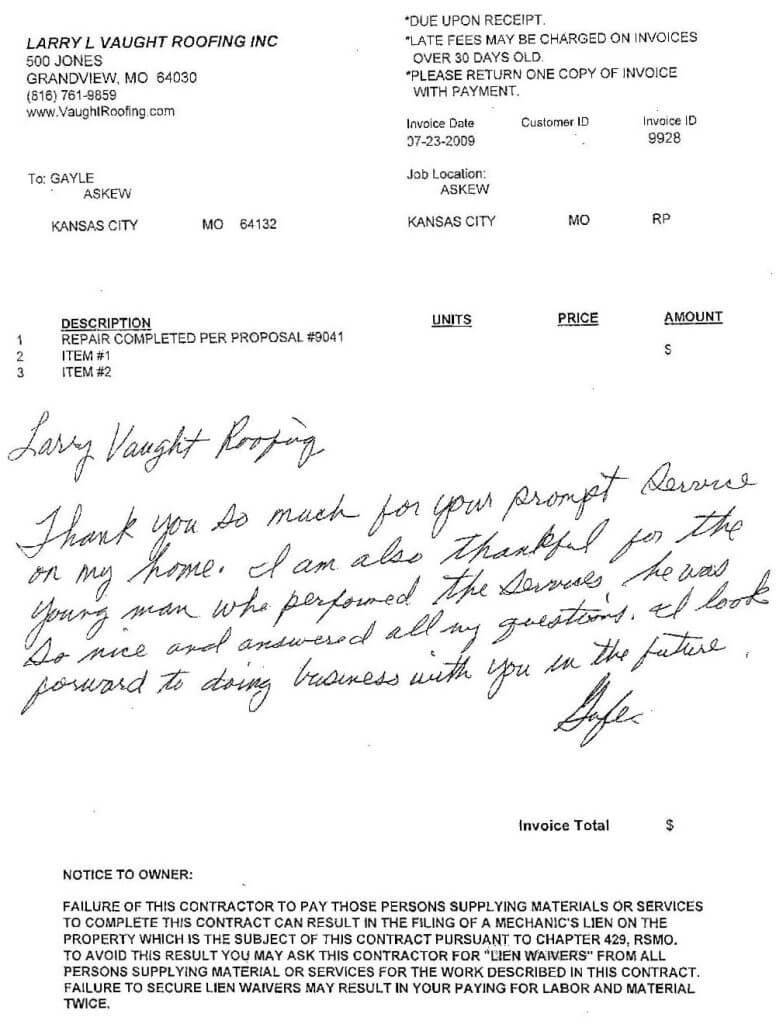 LARRY L VAUGHT ROOFING INC
500 JONES
GRANDVIEW, MO 64030
(816) 761-9859
www.VaughtRoofing.com
*DUE UPON RECEIPT.
*LATE FEES MAY BE CHARGED ON INVOICES
OVER 30 DAYS OLD.
*PLEASE RETURN ONE COPY OF INVOICE
WITH PAYMENT.
Invoice Date Customer ID Invoice ID
07-23-2009 9928
To: GAYLE
ASKEW
KANSAS CITY MO 64132
Job Location:
ASKEW
KANSAS CITY MO RP
DESCRIPTION UNITS PRICE AMOUNT
1 REPAIR COMPLETED PER PROPOSAL #9041
2 ITEM #1 $
3 ITEM #2
Larry Vaught Roofing
Thank you so much for your prompt service
on my home. I am also thankful for the
young man who performed the services, he was
so nice and answered all my questions. I look
forward to doing business with you in the future.
Gayle
Invoice Total $
NOTICE TO OWNER:
FAILURE OF THIS CONTRACTOR TO PAY THOSE PERSONS SUPPLYING MATERIALS OR SERVICES
TO COMPLETE THIS CONTRACT CAN RESULT IN THE FILING OF A MECHANIC'S LIEN ON THE
PROPERTY WHICH IS THE SUBJECT OF THIS CONTRACT PURSUANT TO CHAPTER 429, RSMO.
TO AVOID THIS RESULT YOU MAY ASK THIS CONTRACTOR FOR "LIEN WAIVERS" FROM ALL
PERSONS SUPPLYING MATERIAL OR SERVICES FOR THE WORK DESCRIBED IN THIS CONTRACT.
FAILURE TO SECURE LIEN WAIVERS MAY RESULT IN YOUR PAYING FOR LABOR AND MATERIAL
TWICE.